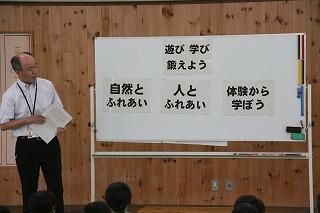 遊び 学び
鍛えよう
自然と
ふれあい
人と
ふれあい
体験から
学ぼう